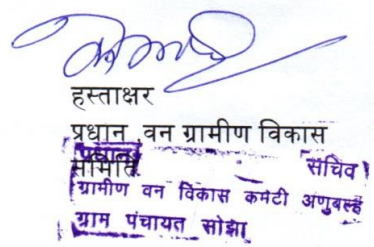 हस्ताक्षर
प्रधान वन ग्रामीण विकास
समिति
प्रधान सचिव
ग्रामीण वन विकास कमटी अणुबल्ह
ग्राम पंचायत सोझा